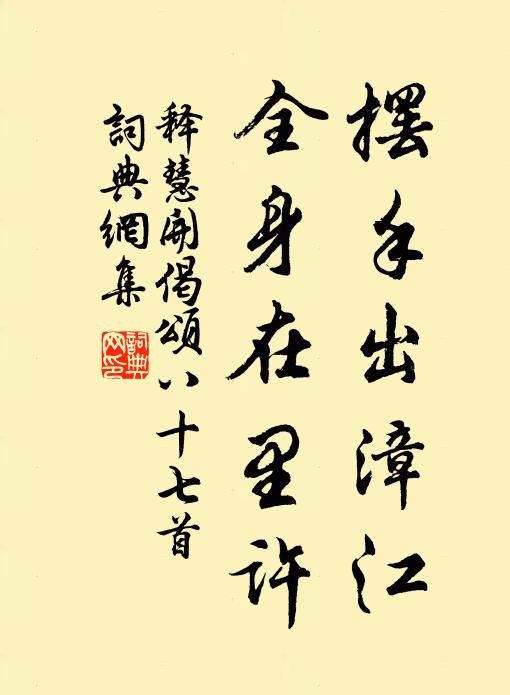 擺手出漳江
全身在里許
释慧開偈頌八十七首
詞典網集
詞典网印